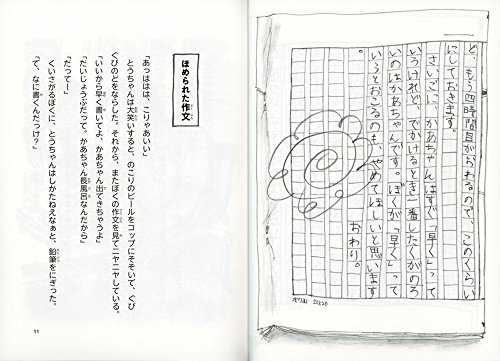 ど、もう四時間目がおわるので、このくらい
にしておきます。
さいごに、かあちゃんはすぐ「早く」って
いうけれど、でかけるとき一番したくがのろ
いのはかあちゃんです。ぼくが「早く」って
いうとおこるのも、やめてほしいと思います
おわり。
20×20
ほめられた作文
「あっははは、こりゃあいい」
とうちゃんは大笑いすると、のこりのビールをコップにそそいで、ぐび
ぐびのどをならした。それから、またぼくの作文を見てニヤニヤしている。
「いいから早く書いてよ。かあちゃん出てきちゃうよ」
「だいじょうぶだって。かあちゃん長風呂なんだから」
「だってー」
くいさがるぼくに、とうちゃんはしかたねえなぁと、鉛筆をにぎった。
「で、なに書くんだっけ?」
11